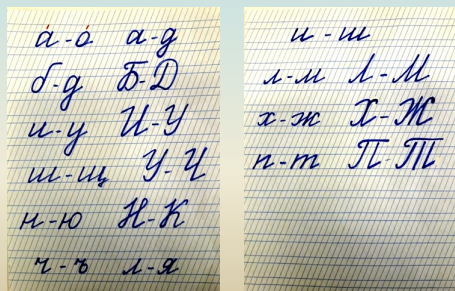 а́ - о́ а - д
б - д Б - Д
и - у И - У
ш - щ У - Ч
н - ю Н - К
ч - ъ л - я
и - ш
л - м Л - М
х - ж Х - Ж
п - т П - Т